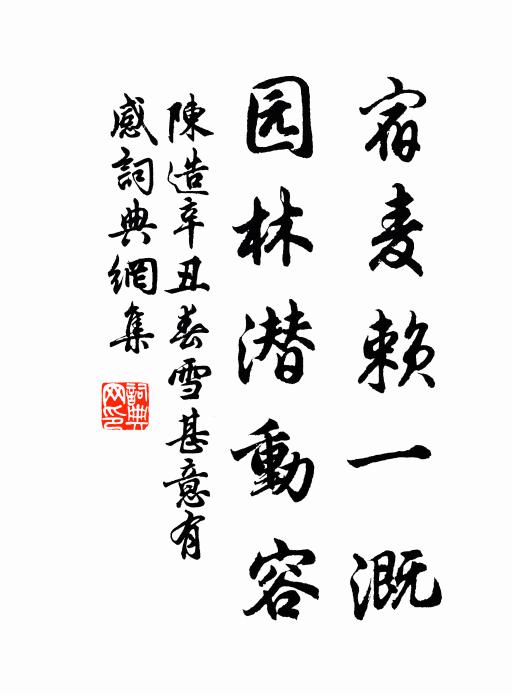 宿麦赖一溉
园林潜動容
陳造辛丑春雪甚意有
感詞典網集
詞典网印